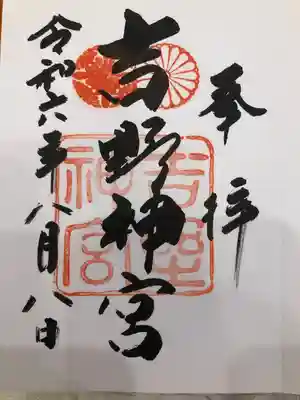 奉拝
吉野神宮
吉野
神宮
令和六年八月八日